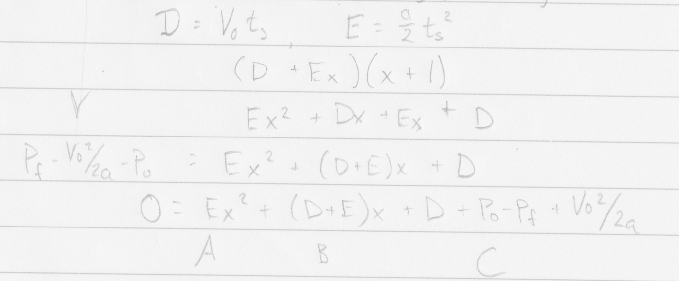 D = V₀ tₛ, E = a/2 tₛ²
(D + Ex)(x + 1)
V Ex² + Dx + Ex + D
P_f - V₀²/2a - P₀ = Ex² + (D+E)x + D
0 = Ex² + (D+E)x + D + P₀ - P_f + V₀²/2a
A B C